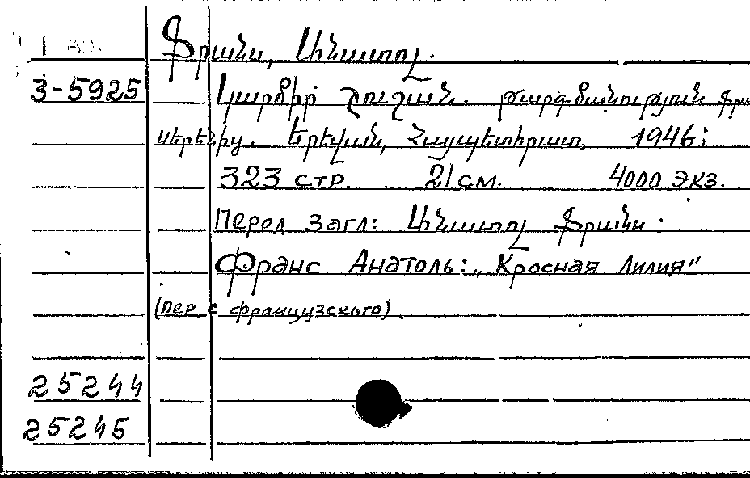 Ֆրանս, Անատոլ.
3-5925 Կարմիր շուշան. թարգմանություն ֆրա
սերենից. Երևան, Հայպետհրատ, 1946:
323 стр. 21 см. 4000 экз.
Перед загл: Անատոլ Ֆրանս:
Франс Анатоль: „Красная лилия"
(пер. с французского)
25244
25245